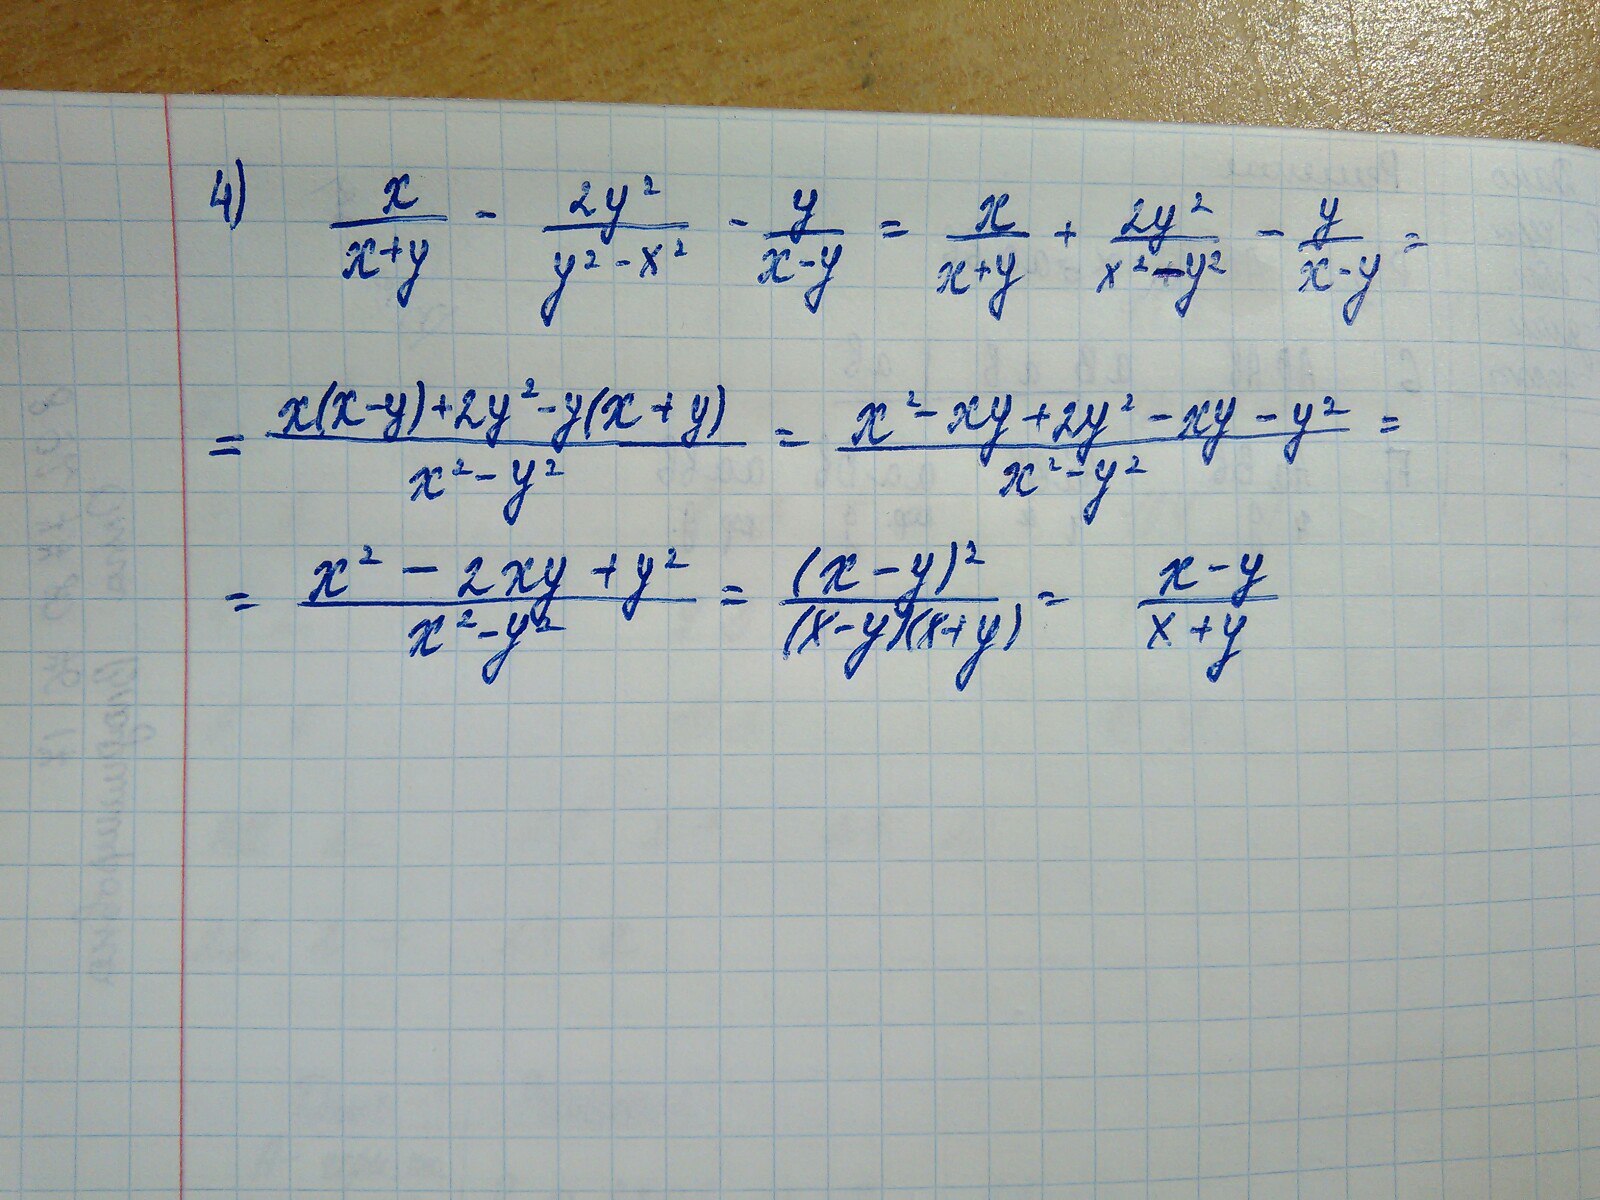 4) x/(x+y) - 2y²/(y²-x²) - y/(x-y) = x/(x+y) + 2y²/(x²-y²) - y/(x-y) =
= (x(x-y)+2y²-y(x+y))/(x²-y²) = (x²-xy+2y²-xy-y²)/(x²-y²) =
= (x²-2xy+y²)/(x²-y²) = (x-y)²/((x-y)(x+y)) = (x-y)/(x+y)